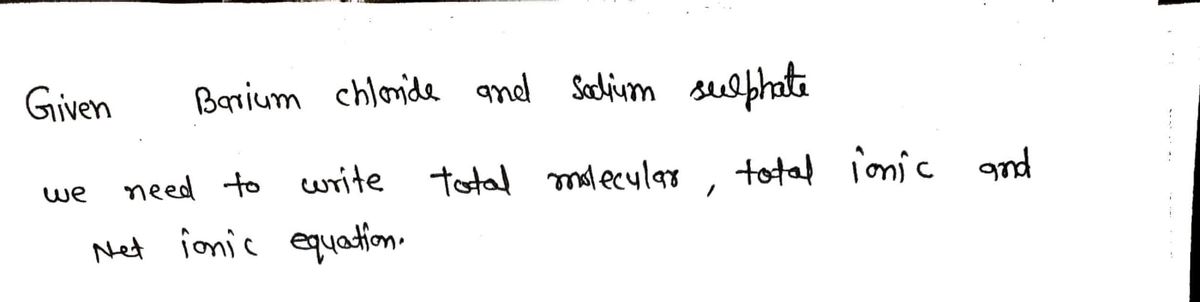 Given Barium chloride and Sodium sulphate
we need to write total molecular, total ionic and
Net ionic equation.